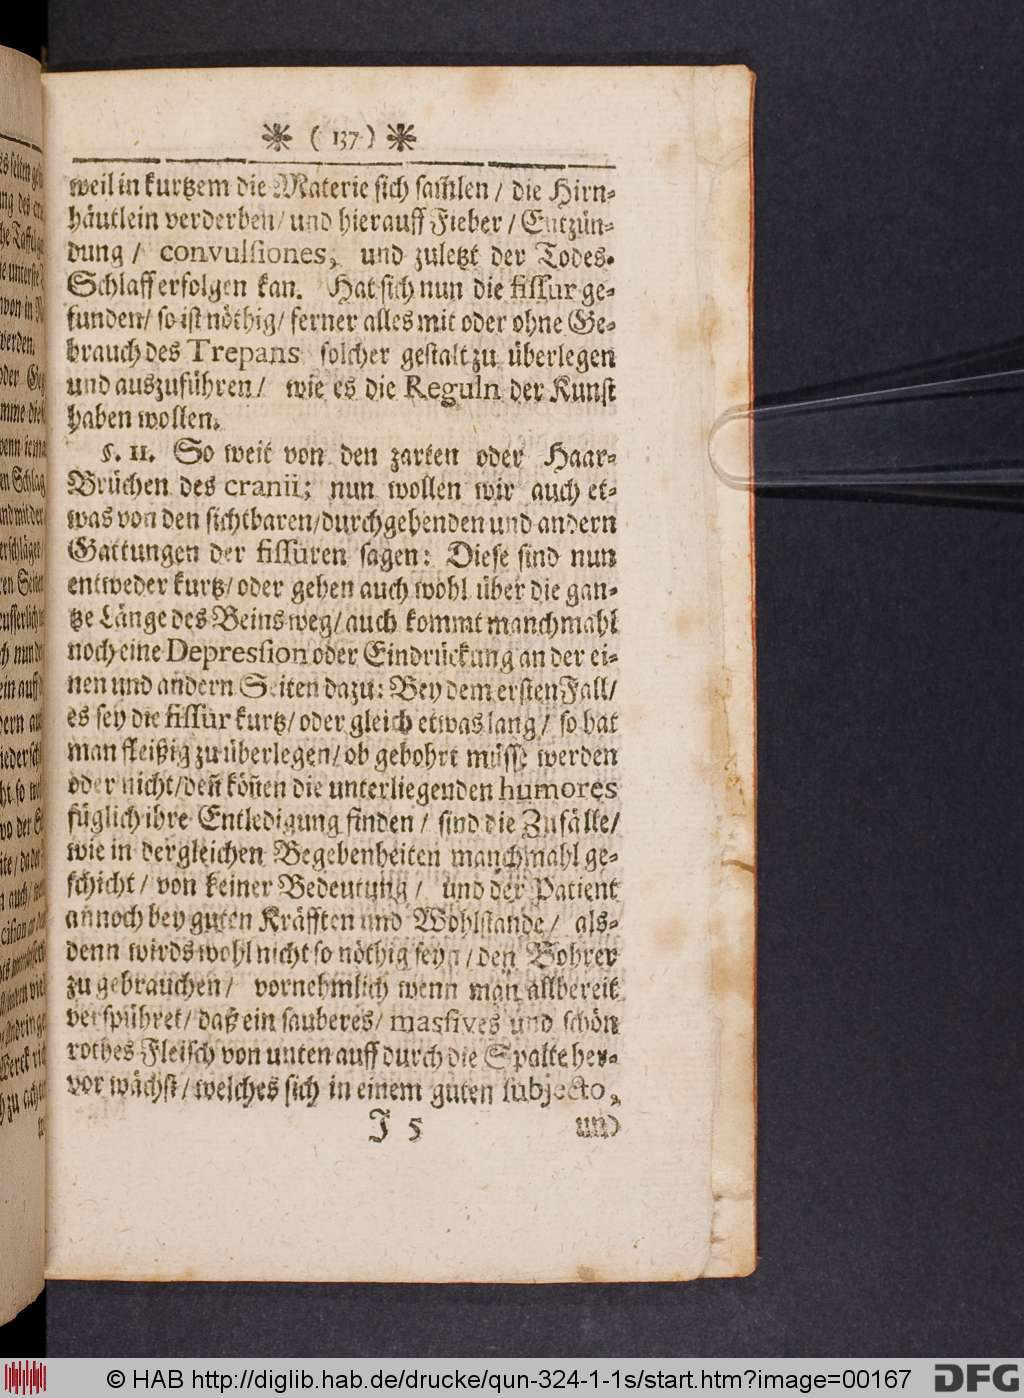 ( 137 )
weil in kurtzem die Materie sich sam̃len / die Hirn-
häutlein verderben / und hierauff Fieber / Entzün-
dung / convulsiones, und zuletzt der Todes-
Schlaff erfolgen kan. Hat sich nun die fissur ge-
funden / so ist nöthig / ferner alles mit oder ohne Ge-
brauch des Trepans solcher gestalt zu überlegen
und auszuführen / wie es die Reguln der Kunst
haben wollen.
§. 11. So weit von den zarten oder Haar-
Brüchen des cranii; nun wollen wir auch et-
was von den sichtbaren / durchgehenden und andern
Gattungen der fissuren sagen: Diese sind nun
entweder kurtz / oder gehen auch wohl über die gan-
tze Länge des Beins weg / auch kommt manchmahl
noch eine Depression oder Eindrückung an der ei-
nen und andern Seiten dazu: Bey dem ersten Fall /
es sey die fissur kurtz / oder gleich etwas lang / so hat
man fleißig zu überlegen / ob gebohrt müsse werden
oder nicht / den̄ kön̄en die unterliegenden humores
füglich ihre Entledigung finden / sind die Zufälle /
wie in dergleichen Begebenheiten manchmahl ge-
schicht / von keiner Bedeutung / und der Patient
annoch bey guten Kräfften und Wohlstande / als-
denn wirds wohl nicht so nöthig seyn / den Bohrer
zu gebrauchen / vornehmlich wenn man allbereit
verspühret / daß ein sauberes / massives und schön
rothes Fleisch von unten auff durch die Spalte her-
vor wächst / welches sich in einem guten subjecto,
J 5 und
© HAB http://diglib.hab.de/drucke/qun-324-1-1s/start.htm?image=00167
DFG